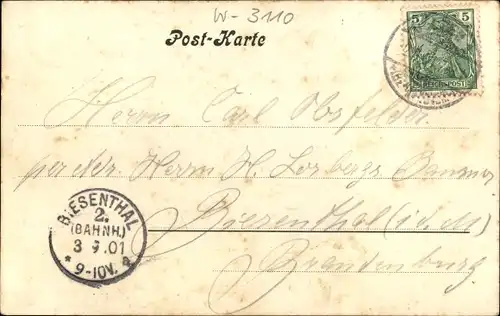 W-3110
Post-Karte
5 5
REICHSPOST
Herrn Carl Obsfelder
per adr. Herrn H. Lorbergs
Biesenthal (i. d. M)
Brandenburg.
BIESENTHAL
2.
(BAHNH.)
3 9. 01
* 9-10V. *